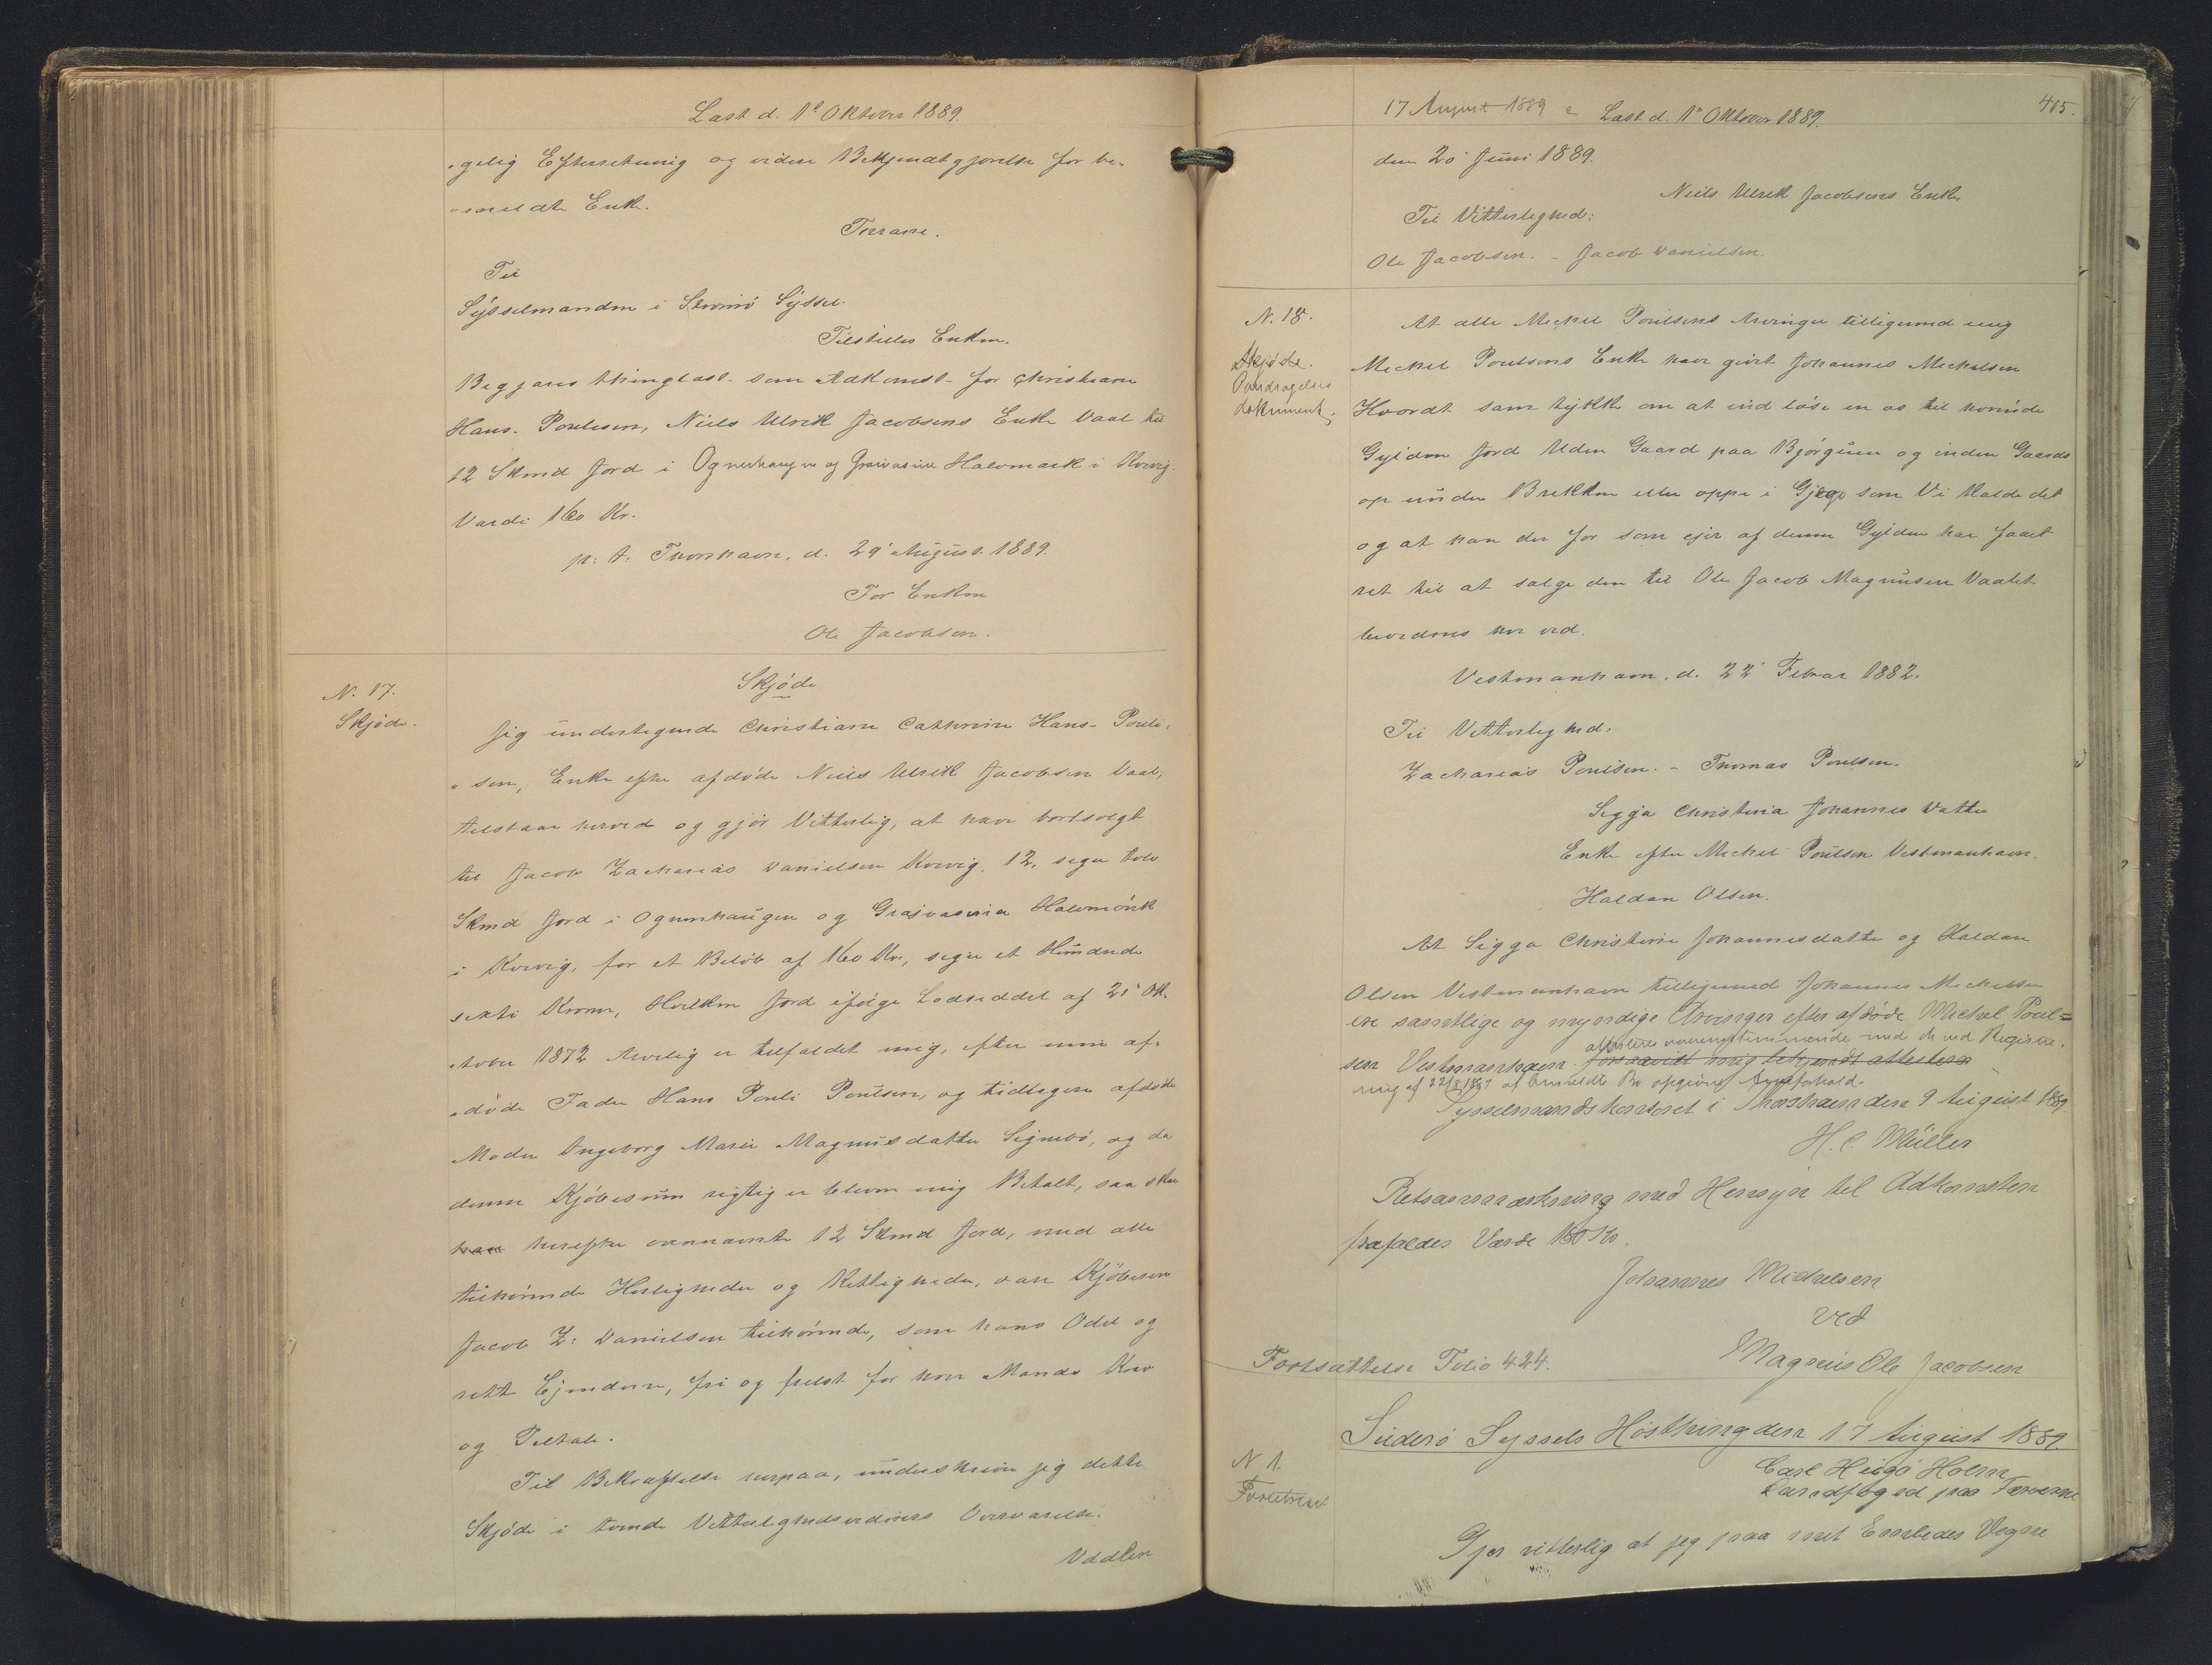 Læst d. 1e Oktober 1889.
"gelig Efterretning og videre Bekjendtgjørelse for be-
"meldte Enke.
Til
Sysselmanden i Strømø Syssel.
Tilstilles Enken.
Begjæres thinglæst som Adkomst for Christiane
Hans-Poulsen, Niels Ulrik Jacobsens Enke Vaal til
12 Skind Jord i Ognerhaugen og Halvmark i Kvivig.
Værdi 160 Kr.
p: t. Thorshavn, d. 29' August 1889.
For Enken
Ole Jacobsen.
N. 17.
Skjøde.
Skjøde
Jeg undertegnede Christiane Cathrine Hans-Pouls-
"sen, Enke efter afdøde Niels Ulrik Jacobsen Vaal,
tilstaar herved og gjør Vitterlig, at have bortsolgt
til Jacob Zacharias Danielsen Kvivig, 12, siger tolv
Skind Jord i Ognerhaugen og Halvmørk
i Kvivig, for et Beløb af 160 Kr., siger et Hundrede
sexti Kroner, Hvilken Jord ifølge Lodseddel af 21' Ok-
"tober 1872 Arvelig er tilfaldet mig, efter min af-
"døde Fader Hans Pouli Poulsen, og tidligere afdøde
Moder Ingeborg Marie Magnusdatter Signebø, og da
denne Kjøbesum rigtig er bleven mig Betalt, saa skal
herefter ovennævnte 12 Skind Jord, med alle
tilhørende Herligheder og Rettigheder, være Kjøberen
Jacob Z. Danielsen tilhørende, som hans Odel og
rette Ejendom, fri og frelst for hver Mands Krav
og Tiltale.
Til Bekræftelse herpaa, underskriver jeg dette
Skjøde i tvende Vitterlighedsvidners Overværelse.
Uddlen
17 August 1889 & Læst d. 1e Oktober 1889.
415.
den 20' Juni 1889.
Niels Ulrik Jacobsens Enke
Til Vitterlighed:
Ole Jacobsen. - Jacob Danielsen.
N. 18.
Skjøde.
Overdragelses
dokument.
At alle Mechel Poulsens Arvinger tilligemed mig
Mechel Poulsens Enke have givet Johannes Mechelsen
Hvordt samtykke om at indløse en os tilhørende
Gylden Jord Uden Gaard paa Bjørgum og inden Gaards
op under Brekken eller oppe i som Vi kalde det
og at han der for som ejer af denne Gylden har faaet
ret til at sælge den til Ole Jacob Magnusen Vaalet
bevidnes her ved.
Vestmanhavn, d. 22' Februar 1882.
Til Vitterlighed:
Zacharias Poulsen. - Thomas Poulsen.
Sigga Christina Johannes Datter
Enke efter Mechel Poulsen Vestmanhavn.
Haldan Olsen.
At Sigga Christine Johannesdatter og Haldan
Olsen Vestmanhavn tilligemed Johannes Mechelsen
ere samtlige og myndige Arvinger efter afdøde Michel Poul=
sen Vestmanhavn. forsaavidt mig bekjendt attesteres
attesteres overensstemmende med de ved Regjerin-
ning af 22/8 1887 af bemeldte Bo opgivne Arveforhold.
Sysselmandskontoret i Thorshavn den 9 August 1889.
H. C. Müller
Retsanmærkning med Hensyn til Adkomsten
frafaldes Værdi 150 Kr.
Johannes Michelsen
ved
Magnus Ole Jacobsen
Fortsættelse Folio 424.
Suderø Syssels Høstthing den 17 August 1889
N 1.
Carl Hugo Holm
Landfoged paa Færøerne
Gjør vitterlig at jeg paa mit Embedes Vegne